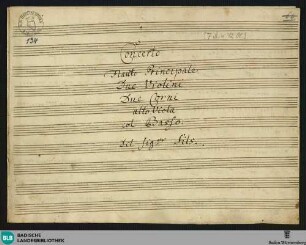 134
Concerto
Flauto Principale.
Due Violini
Due Corni
alto Viola
col Basso.
Del Sigre Fils.
BLB BADISCHE
LANDESBIBLIOTHEK